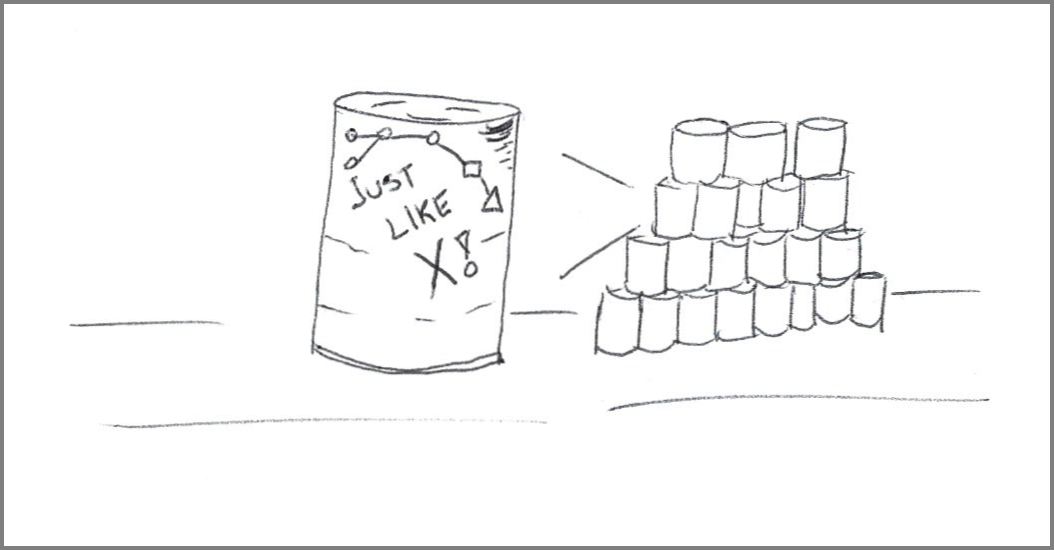 JUST
LIKE
X!